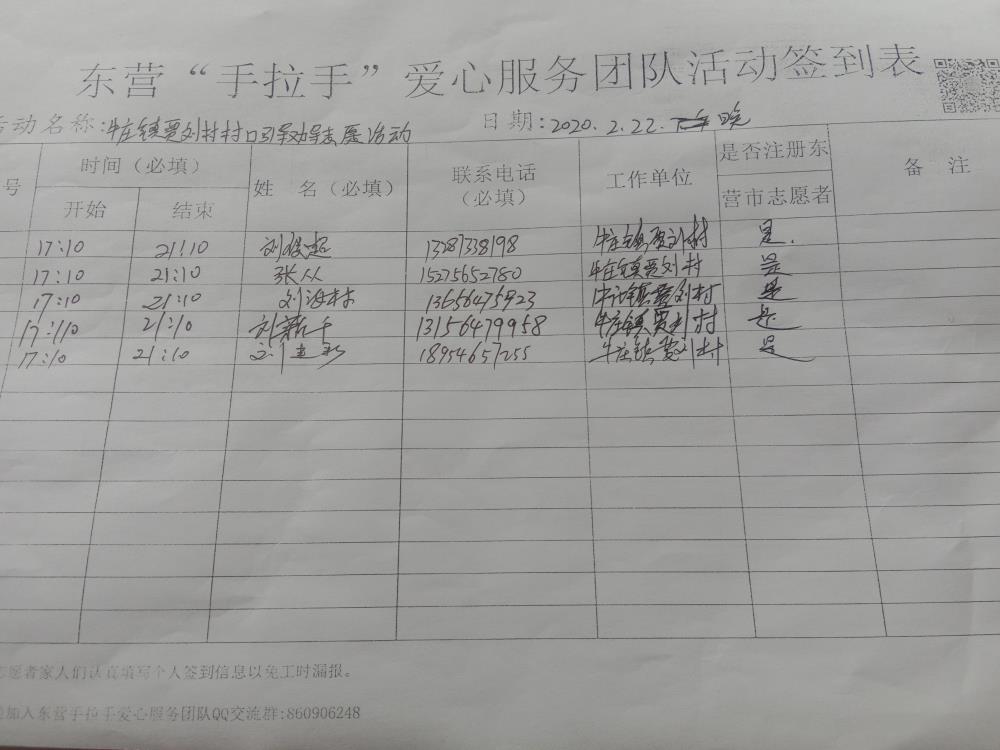 东营“手拉手”爱心服务团队活动签到表
活动名称:牛庄镇贾刘村村口引导劝导志愿活动 日期:2020.2.22. 晚
号 时间（必填） 姓 名（必填） 联系电话（必填） 工作单位 是否注册东营市志愿者 备 注
开始 结束
17:10 21:10 刘俊超 13287338198 牛庄镇贾刘村 是.
17:10 21:10 张从 15275652780 牛庄镇贾刘村 是
17:10 21:10 刘海村 13656475923 牛庄镇贾刘村 是
17:10 21:10 刘新千 13156479958 牛庄镇贾刘村 是
17:10 21:10 刘 18954657255 牛庄镇贾刘村 是
志愿者家人们认真填写个人签到信息以免工时漏报。
加入东营手拉手爱心服务团队QQ交流群:860906248